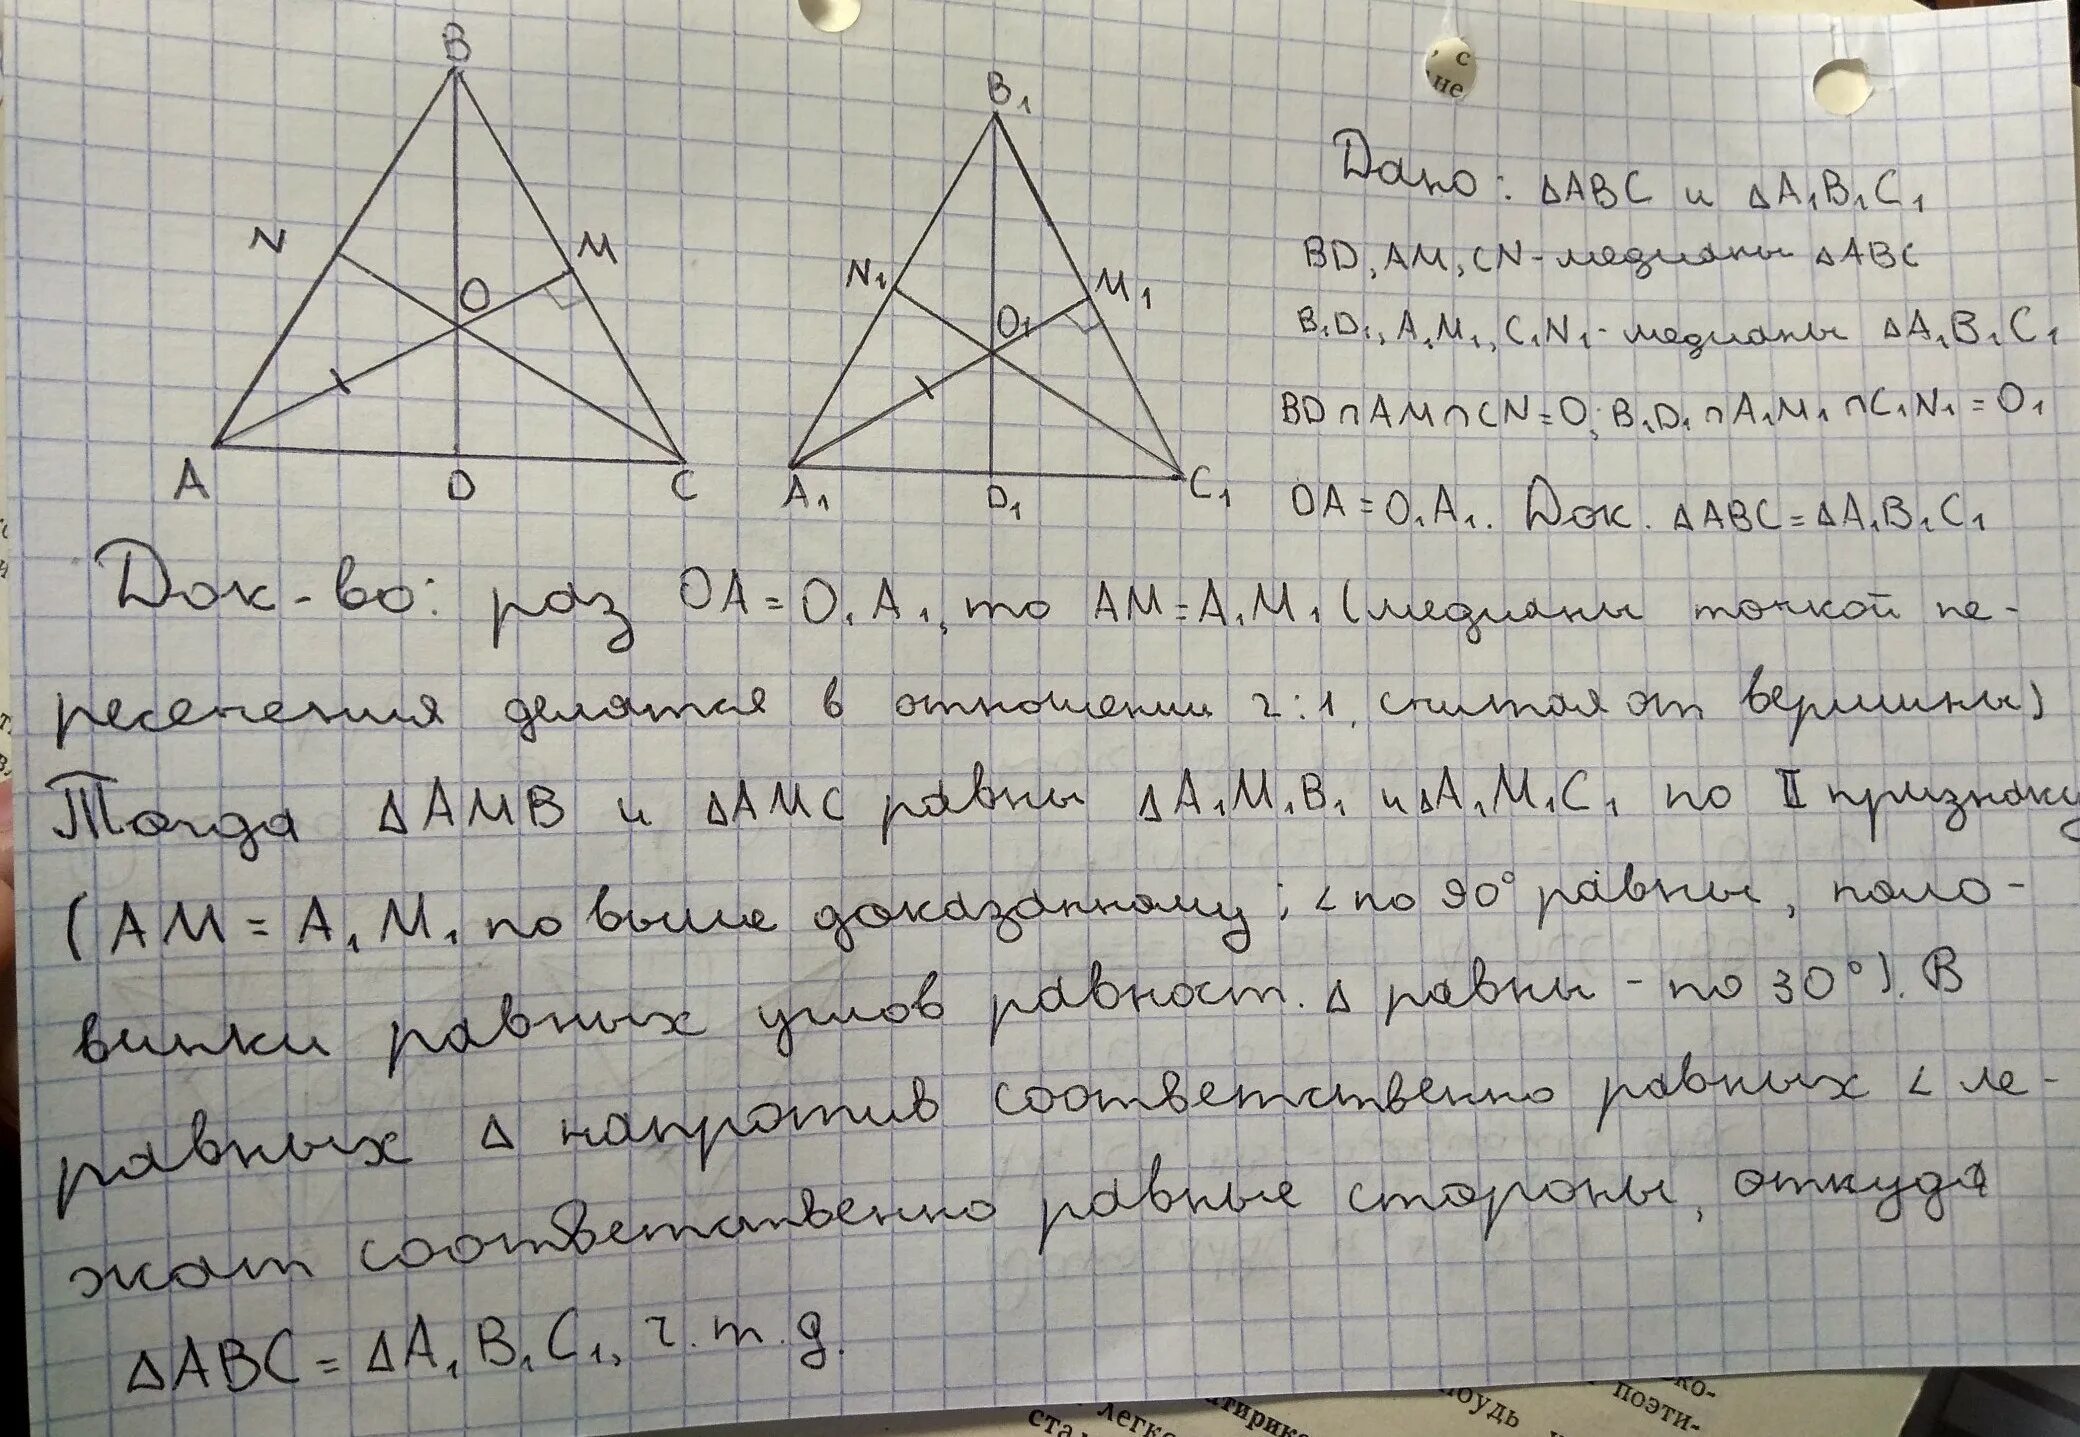 B
B₁
N
M
O
N₁
M₁
O₁
A
D
C
A₁
D₁
C₁
Дано: ΔABC и ΔA₁B₁C₁
BD, AM, CN - медианы ΔABC
B₁D₁, A₁M₁, C₁N₁ - медианы ΔA₁B₁C₁
BD∩AM∩CN=O; B₁D₁∩A₁M₁∩C₁N₁=O₁
OA=O₁A₁. Док. ΔABC=ΔA₁B₁C₁
Док-во: раз OA=O₁A₁, то AM=A₁M₁ (медианы точкой пе-
ресечения делятся в отношении 2:1, считая от вершины)
Тогда ΔAMB и ΔAMC равны ΔA₁M₁B₁ и ΔA₁M₁C₁ по II признаку
(AM=A₁M₁ по выше доказанному; < по 90° равны, поло-
винки равных углов равност. Δ равны - по 30°). В
равных Δ напротив соответственно равных < ле-
жат соответственно равные стороны, откуда
ΔABC=ΔA₁B₁C₁, ч.т.д.
, с
не
ко-
поэти-
оудь
тирик
легк
ста